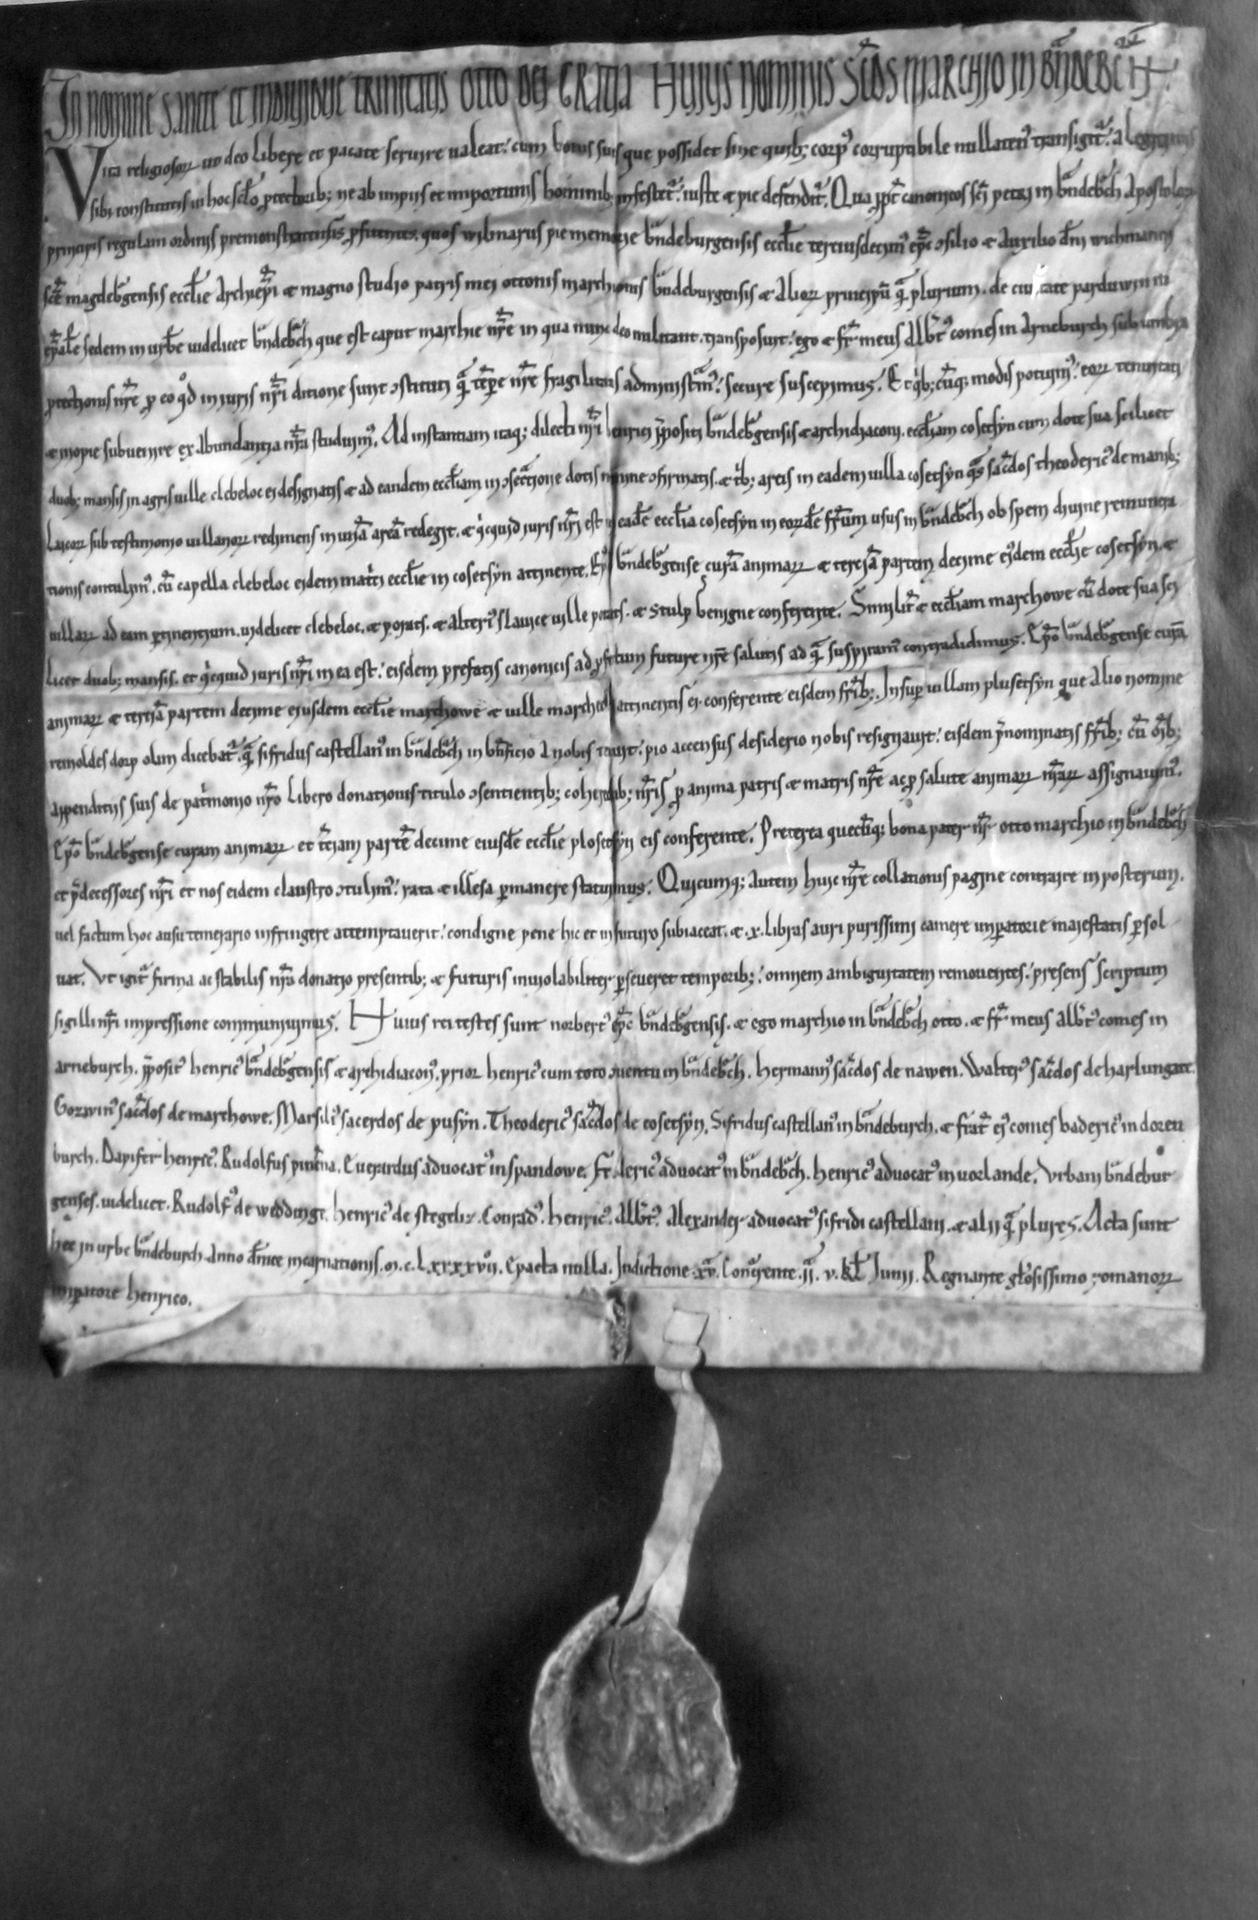 In nomine sancte et individue trinitatis Otto dei gratia Hujus nominis Scd̄s marchio in Bn̄deb'ch
Vita religiosoꝝ ut deo libere et pacate servire valeat. cum bonis suis que possidet sine quib; corpꝰ corruptibile nullatenꝰ transigit᷑. a legitimis
sibi constitutis in hoc scl̄o ꝓtectorib; ne ab impiis et importunis hominib; infestet᷑. iuste ⁊ pie defendit᷑. Qua ꝓpt̄ canonicos sc̄i petri in bn̄deb'ch apostoloꝝ
principis regulam ordinis premonstratensis ꝓfitentes. quos wilmarus pie memorie bn̄deburgensis eccl̄ie terciusdecimꝰ ep̄c ɔsilio ⁊ auxilio dn̄i wichmanni
sc̄e magdeb'gensis eccl̄ie archiep̄i ⁊ magno studio patris mei ottonis marchionis bn̄deburgensis ⁊ alioꝝ principū q̄ plurium. de civitate parduwin in
ep̄ale sedem in urbe videlicet bn̄deb'ch que est caput marchie nr̄e in qua nunc deo militant. transposuit. ego ⁊ fr̄ meus albt̄ꝰ comes in arneburch sub umbra
ꝓtectionis nr̄e ꝓ eo qd̊ in iuris nr̄i ditione sunt ɔstituti q̄ tēpe nr̄e fragilitatis administram᷑. secure suscepimus. Et qⁱb;cūq; modis potuimꝰ. eoꝝ tenuitati
⁊ inopie subvenire ex abundantia nr̄a studuimꝰ. Ad instantiam itaq; dilecti nr̄i henrici p̄positi bn̄deb'gensis ⁊ archidiaconi. eccl̄iam cosetsÿn cum dote sua scilicet
duob; mansis in agris ville clebeloc ei designatis ⁊ ad eandem eccl̄iam in ɔsec̄tione dotis nomine ɔfirmatis. ⁊ tⁱb; areis in eadem villa cosetsÿn q̄s sac̄dos theodericꝰ de manib;
laicoꝝ sub testimonio villanoꝝ redimens in unā areā redegit. ⁊ qⁱcquid iuris nr̄i est in eadē eccl̄ia cosetsÿn in eorūdē fr̄um usus in bn̄deb'ch ob spem divine remunera
tionis contulimꝰ. cū capella clebeloc eidem matⁱci eccl̄ie in cosetsÿn attinente. Ep̄o bn̄deb'gense curā animaꝝ ⁊ terciā partem decime eiꝰdem eccl̄ie cosetsÿn. ⁊
villaꝝ ad eam ꝑtinentium. videlicet clebeloc. ⁊ porats. ⁊ alteriꝰ slavice ville porats. ⁊ stulp benigne conferente. Similit᷑ ⁊ eccl̄iam marchowe cū dote sua sci
licet duob; mansis. et qⁱcquid iuris nr̄i in ea est. eisdem prefatis canonicis ad ꝓfectum future nr̄e salutis ad q̄ suspiramꝰ contradidimus. Ep̄o bn̄deb'gense curā
animaꝝ ⁊ terciā partem decime ejusdem eccl̄ie marchowe ⁊ ville marchowe attinentis ei conferente eisdem fr̄ib;. Insup villam plusetsÿn que alio nomine
remoldes dorp olim dicebat᷑. q̄ sifridus castellanꝰ in bn̄deb'ch in bn̄ficio a nobis tenuit. pio accensus desiderio nobis resignavit. eisdem p̄nominatis fr̄ib; cū oīb;
appenditiis suis de patⁱmonio nr̄o libero donationis titulo ɔsentientib; coheredib; nr̄is ꝓ anima patris ⁊ matris nr̄e ac ꝓ salute animaꝝ nr̄aꝝ assignavimꝰ.
Ep̄o bn̄deb'gense curam animaꝝ et tc̄iam partē decime eiusdē eccl̄ie plosetsÿn eis conferente. Preterea quecūq; bona pater nr̄ otto marchio in bn̄deb'ch
et p̄decessores nr̄i et nos eidem claustro ɔtulimꝰ. rata ⁊ illesa ꝑmanere statuimus. Quicumq; autem huic nr̄e collationis pagine contraire in posterum.
vel factum hoc ausu temerario infringere attemptaverit. condigne pene hic et in futuro subiaceat. ⁊ .x. libras auri purissimi camere imꝑatorie maiestatis ꝑsol
vat. Ut igit᷑ firma ac stabilis nr̄a donatio presentib; ⁊ futuris inviolabiliter ꝑseveret temporib;. omnem ambiguitatem removentes. presens scriptum
sigilli nr̄i impressione communivimus. Huius rei testes sunt norbertꝰ ep̄c bn̄deb'gensis. ⁊ ego marchio in bn̄deb'ch otto. ⁊ fr̄ meus albt̄ꝰ comes in
arneburch. p̄positꝰ henricꝰ bn̄deb'gensis ⁊ archidiaconꝰ. prior henricꝰ cum toto ɔventu in bn̄deb'ch. hermannꝰ sac̄dos de nawen. Walterꝰ sac̄dos de harlungate.
Gozwinꝰ sac̄dos de marchowe. Marsiliꝰ sacerdos de pusÿn. Theodericꝰ sac̄dos de cosetsÿn. Sifridus castellanꝰ in bn̄deburch. ⁊ frat̄ eiꝰ comes badericꝰ in doren
burch. Dapifer henricꝰ. Rudolfus pincerna. Everardus advocatꝰ in spandowe. fridericꝰ advocatꝰ in bn̄deb'ch. henricꝰ advocatꝰ in vorlande. Urbani bn̄debur
genses. videlicet. Rudolfꝰ de weddinge. henricꝰ de stegeliz. Conradꝰ. henricꝰ. Albt̄ꝰ. Alexander advocatꝰ sifridi castellani. ⁊ alii q̄ plures. Acta sunt
hec in urbe bn̄deburch anno dn̄ice incarnationis .m.c.lxxxxvii. Epacta nulla. Indictione .xv. Concurente .ii. v. kl̄ Junii. Regnante gl̄osissimo romanoꝝ
imꝑatore henrico.